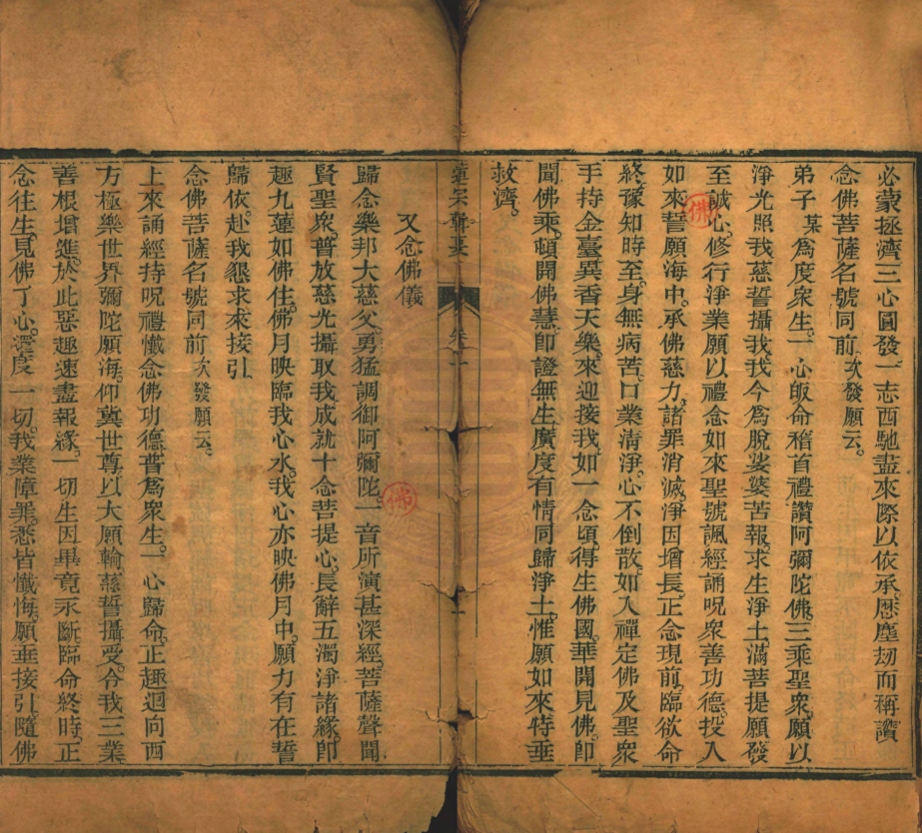 必蒙拯濟三心圓發一志西馳盡來際以依承歷塵劫而稱讚
念佛菩薩名號同前次發願云。
弟子某爲度衆生一心皈命稽首禮讚阿彌陀佛三乘聖衆願以
淨光照我慈誓攝我我今爲脫娑婆苦報求生淨土滿菩提願發
至誠心修行淨業願以禮念如來聖號諷經誦呪衆善功德投入
如來誓願海中承佛慈力諸罪消滅淨因增長正念現前臨欲命
終豫知時至身無病苦口業清淨心不倒散如入禪定佛及聖衆
手持金臺異香天樂來迎接我如一念頃得生佛國華開見佛即
聞佛乘頓開佛慧即證無生廣度有情同歸淨土惟願如來特垂
救濟。
卷十
又念佛儀
歸念樂邦大慈父勇猛調御阿彌陀一音所演甚深經菩薩聲聞
賢聖衆普放慈光攝取我成就十念菩提心長辭五濁淨諸緣即
趣九蓮如佛住佛月映臨我心水我心亦映佛月中願力有在誓
歸依赴我懇求求接引
念佛菩薩名號同前次發願云。
上來誦經持呪禮懺念佛功德普爲衆生一心歸命正趣迴向西
方極樂世界彌陀願海仰冀世尊以大願輪慈誓攝受今我三業
善根增進於此惡趣速盡報緣一切生因畢竟永斷臨命終時正
念往生見佛了心還度一切我業障罪悉皆懺悔願垂接引隨佛
佛
佛